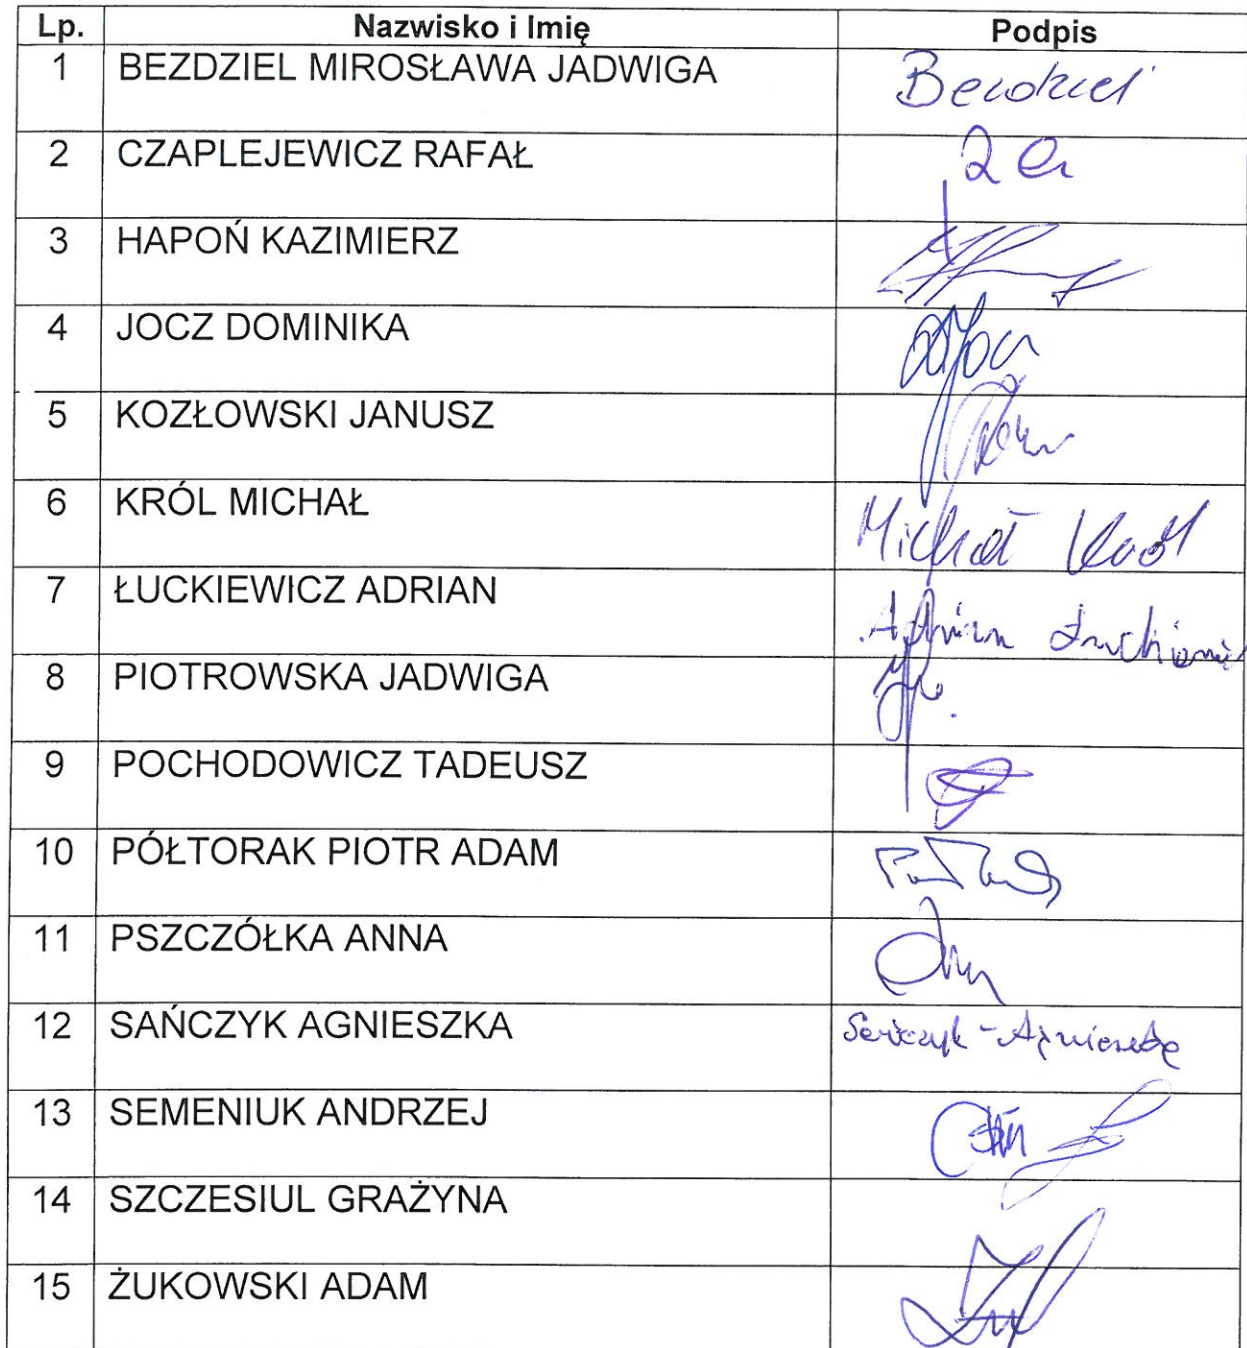 Lp. Nazwisko i Imię Podpis
1 BEZDZIEL MIROSŁAWA JADWIGA
2 CZAPLEJEWICZ RAFAŁ
3 HAPOŃ KAZIMIERZ
4 JOCZ DOMINIKA
5 KOZŁOWSKI JANUSZ
6 KRÓL MICHAŁ Michał Król
7 ŁUCKIEWICZ ADRIAN Adrian
8 PIOTROWSKA JADWIGA
9 POCHODOWICZ TADEUSZ
10 PÓŁTORAK PIOTR ADAM
11 PSZCZÓŁKA ANNA
12 SAŃCZYK AGNIESZKA Sańczyk - Agnieszka
13 SEMENIUK ANDRZEJ
14 SZCZESIUL GRAŻYNA
15 ŻUKOWSKI ADAM